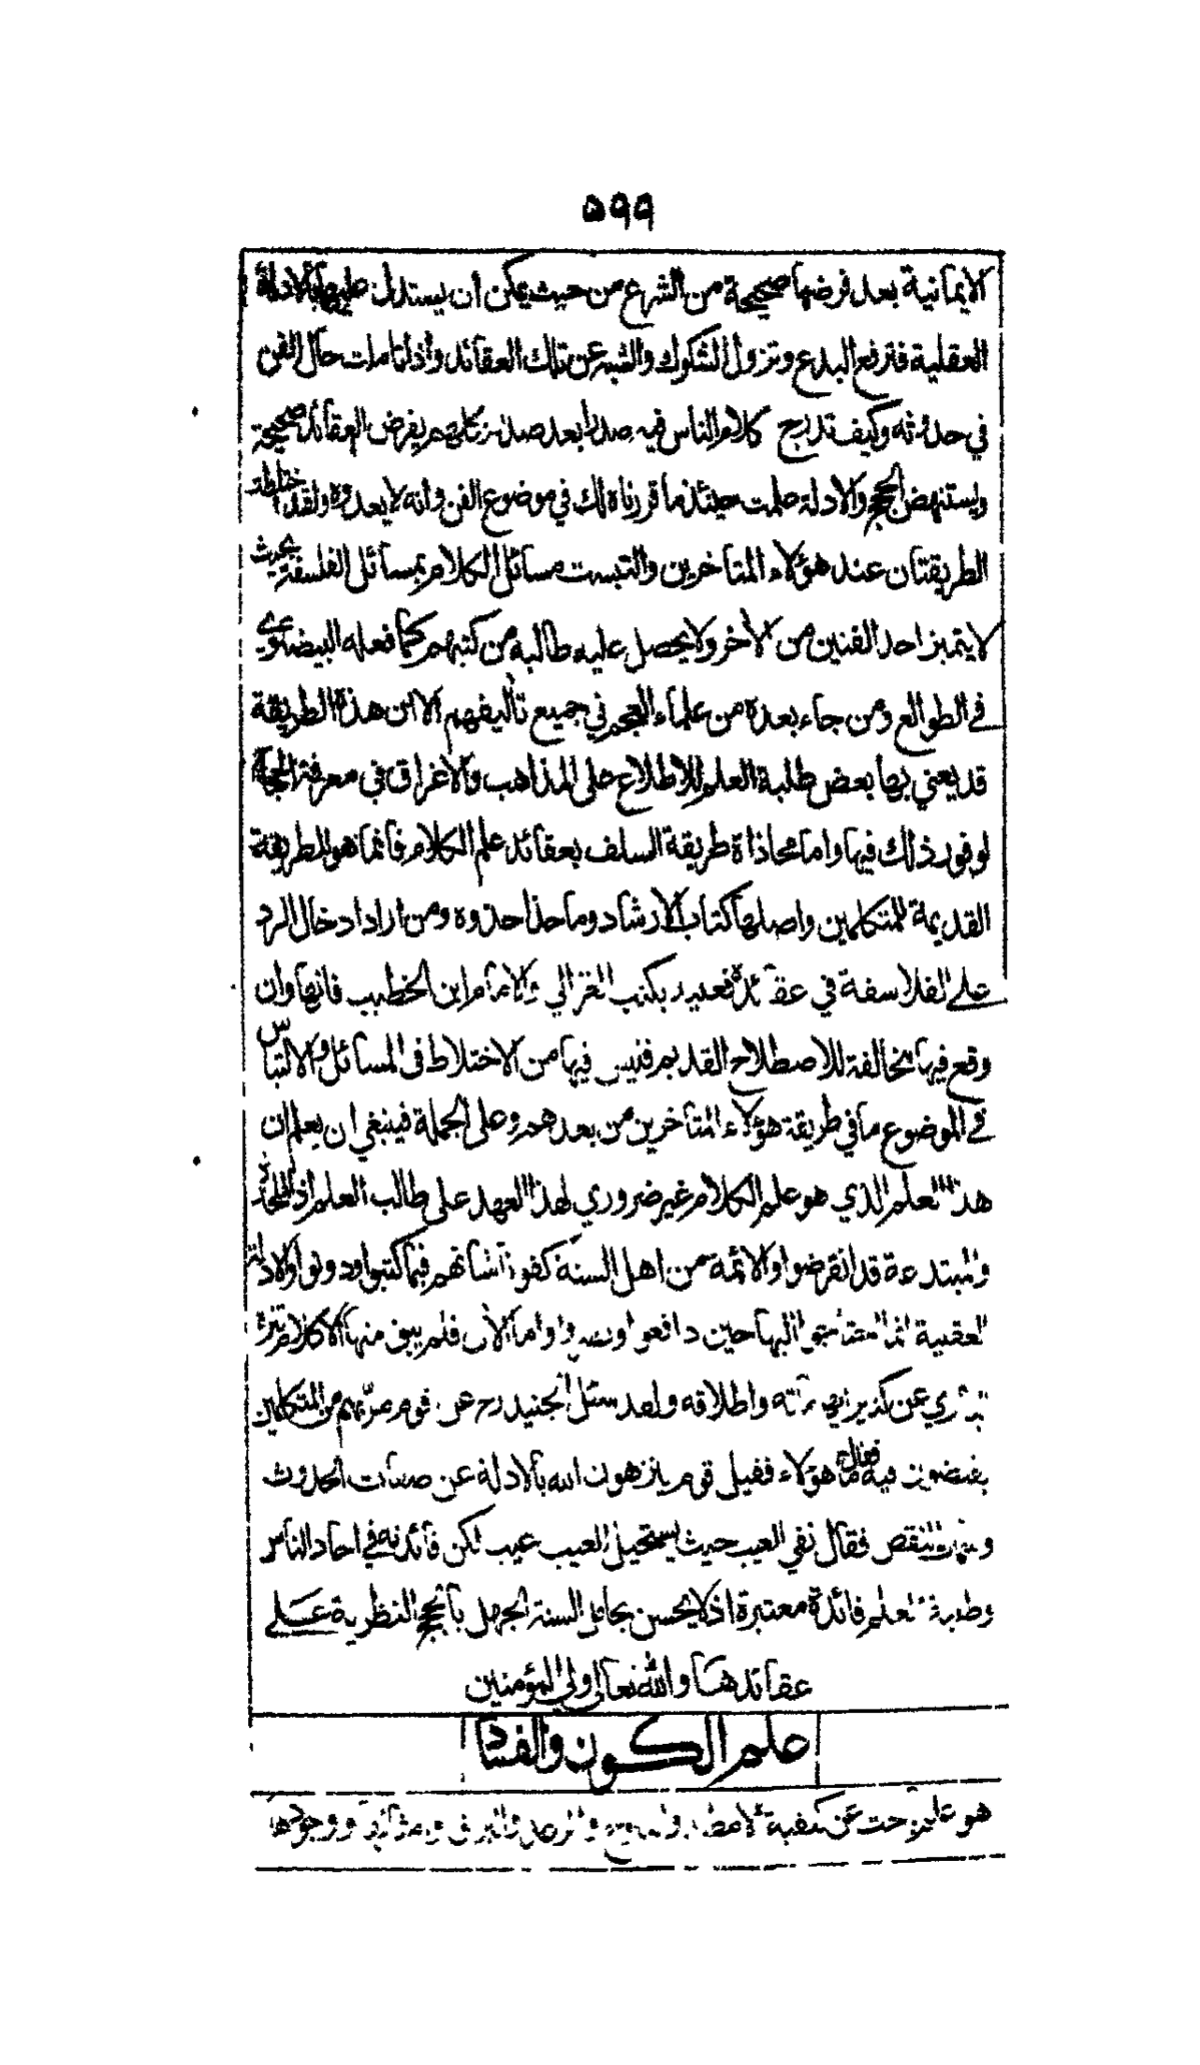 ٥٩٩
الايمانية بعد فرضها صحيحة من الشرع من حيث يمكن ان يستدل عليها بالادلة
العقلية فترفع البدع وتزول الشكوك والشبه عن تلك العقائد واذا تاملت حال الفن
في حدوثه وكيف تدرج كلام الناس فيه صدرا بعد صدر وكلهم يفرض العقائد صحيحة
ويستنهض الحجج والادلة علمت حينئذ ما قررناه لك في موضوع الفن وانه لا يعدوه ولقد اختلطت
الطريقتان عند هؤلاء المتاخرين والتبست مسائل الكلام بمسائل الفلسفة بحيث
لا يتميز احد الفنين من الاخر ولا يحصل عليه طالبه من كتبهم كما فعله البيضاوي
في الطوالع ومن جاء بعده من علماء العجم في جميع تأليفهم الا ان هذه الطريقة
قد يعني بها بعض طلبة العلم للاطلاع على المذاهب والاغراق في معرفة الحجاج
لوفور ذلك فيها واما محاذاة طريقة السلف بعقائد علم الكلام فانما هو للطريقة
القديمة للمتكلمين واصلها كتاب الارشاد وما حذا حذوه ومن اراد ادخال الرد
على الفلاسفة في عقائده فعليه بكتب الغزالي والامام ابن الخطيب فانها وان
وقع فيها مخالفة للاصطلاح القديم فليس فيها من الاختلاط في المسائل والالتباس
في الموضوع ما في طريقة هؤلاء المتاخرين من بعدهم وعلى الجملة فينبغي ان يعلم ان
هذا العلم الذي هو علم الكلام غير ضروري لهذا العهد على طالب العلم اذ الملحدة
والمبتدعة قد انقرضوا والائمة من اهل السنة كفونا شانهم فيما كتبوا ودونوا والادلة
العقلية انما احتاجوا اليها حين دافعوا ونصروا واما الآن فلم يبق منها الا كلام تنزه
الباري عن كثير ايهاماته واطلاقه ولقد سئل الجنيد رح عن قوم مرّ بهم من المتكلمين
يفيضون فيه فقال ما هؤلاء فقيل قوم ينزهون الله بالادلة عن صفات الحدوث
وسمات النقص فقال نفي العيب حيث يستحيل العيب عيب لكن فائدته في احاد الناس
وطلبة العلم فائدة معتبرة اذ لا يحسن بحامل السنة الجهل بالحجج النظرية على
عقائدها والله تعالى ولي المؤمنين
علم الكون والفساد
هو علم يبحث عن كيفية الامطار والثلوج والرعد والبرق و ووجودها